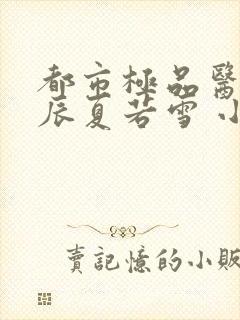 都市極品醫
辰夏若雪 小
賣記憶的小販